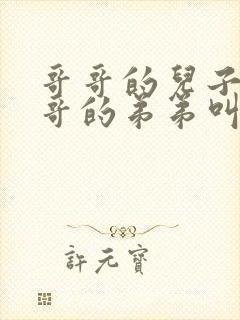 哥哥的兒子
哥的弟弟叫
許元寶